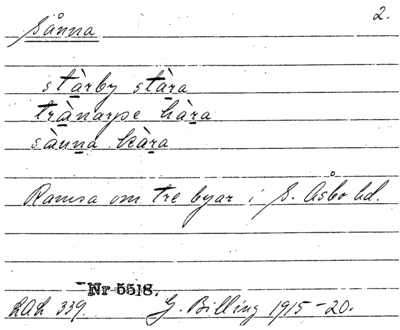 2.
Sånna
stàrby stàra
trànarpe hàra
sànna kàra
Ramsa om tre byar i S. Åsbo hd.
Nr 5518.
LAL 339. G. Billing 1915-20.